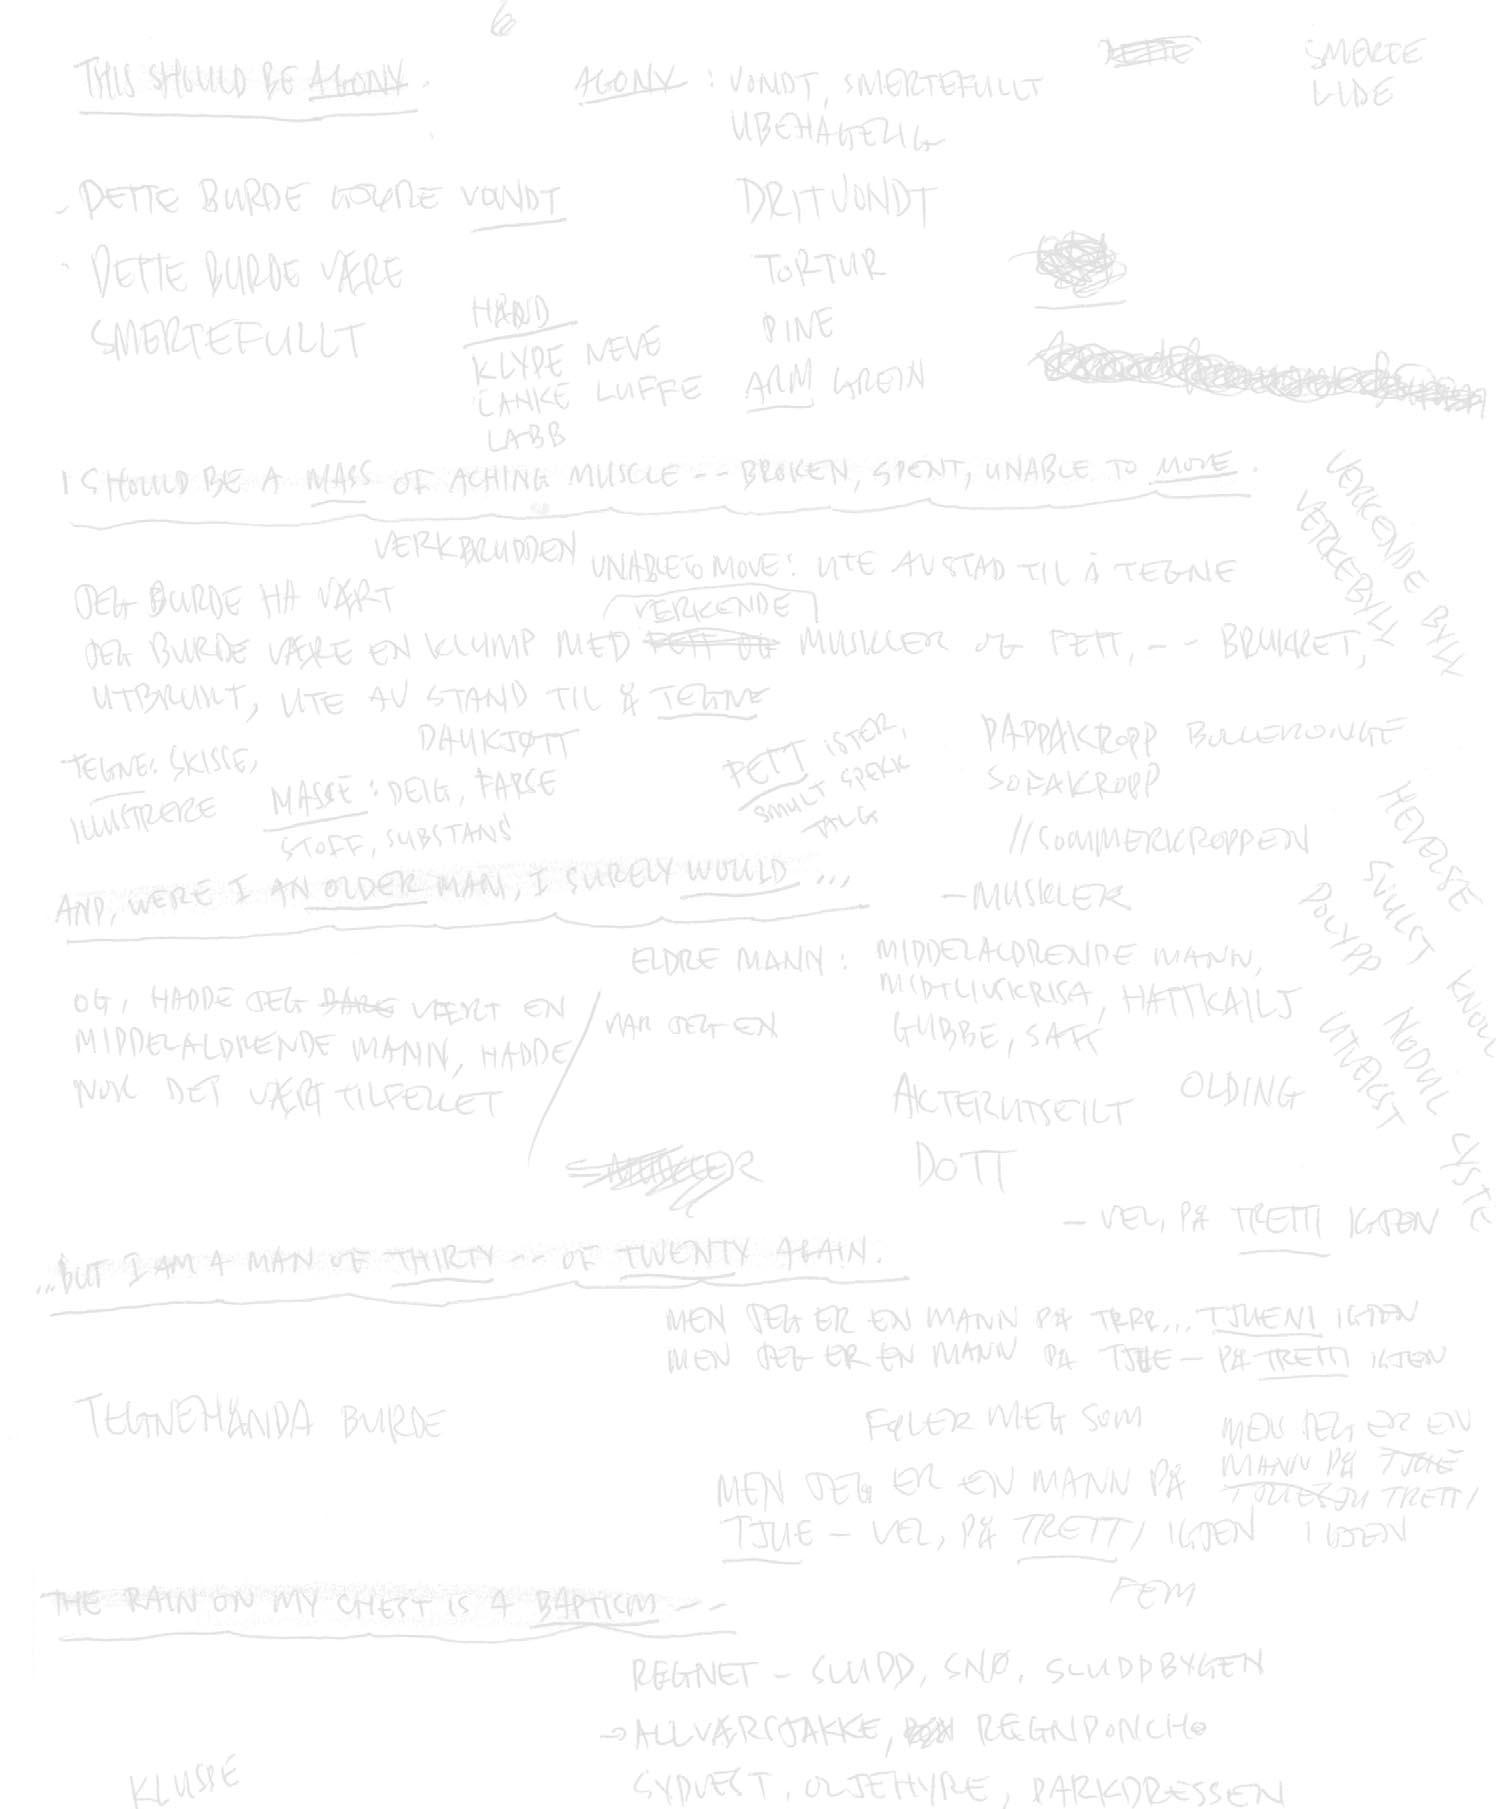 6
THIS SHOULD BE AGONY.
AGONY : VONDT, SMERTEFULLT
UBEHAGELIG
SMERTE
LIDE
- DETTE BURDE GJØRE VONDT
DRITVONDT
- DETTE BURDE VÆRE
SMERTEFULLT
TORTUR
PINE
HÅND
KLYPE NEVE
LANKE LUFFE
LABB
ARM GREIN
I SHOULD BE A MASS OF ACHING MUSCLE -- BROKEN, SPENT, UNABLE TO MOVE.
VERKENDE BYLL
VERKEBYLL
VERKBRUDDEN
UNABLE TO MOVE: UTE AV STAND TIL Å TEGNE
JEG BURDE HA VÆRT
VERKENDE
JEG BURDE VÆRE EN KLUMP MED FETT OG MUSKLER OG FETT, -- BRUKKET,
UTBRUKT, UTE AV STAND TIL Å TEGNE
DAUKJØTT
TEGNE: SKISSE,
ILLUSTRERE
MASSE : DEIG, FARSE
STOFF, SUBSTANS
FETT ISTER,
SMULT SPEKK
TALG
PAPPAKROPP BOLLERONGE
SOFAKROPP
//SOMMERKROPPEN
- MUSKLER
HEVELSE
SVULST
POLYPP
KNOLL
NODUL
UTVEKST
CYSTE
AND, WERE I AN OLDER MAN, I SURELY WOULD ...
ELDRE MANN : MIDDELALDRENDE MANN,
MIDTLIVSKRISA, HATTKAILJ
GUBBE,
AKTERUTSEILT OLDING
DOTT
OG, HADDE JEG BARE VÆRT EN
MIDDELALDRENDE MANN, HADDE
NOK DET VÆRT TILFELLET
VAR JEG EN
- VEL, PÅ TRETTI IGJEN
...BUT I AM A MAN OF THIRTY -- OF TWENTY AGAIN.
MEN JEG ER EN MANN PÅ TRRR... TJUENI IGJEN
MEN JEG ER EN MANN PÅ TJUE - PÅ TRETTI IGJEN
TEGNEHÅNDA BURDE
FØLER MEG SOM
MEN JEG ER EN
MANN PÅ TJUE
TRETTI
IGJEN
MEN JEG ER EN MANN PÅ
TJUE - VEL, PÅ TRETTI IGJEN
FEM
THE RAIN ON MY CHEST IS A BAPTISM --
REGNET - SLUDD, SNØ, SLUDDBYGEN
→ ALLVÆRSJAKKE, REGNPONCHO
SYDVEST, OLJEHYRE, PARKDRESSEN
KLUSSE